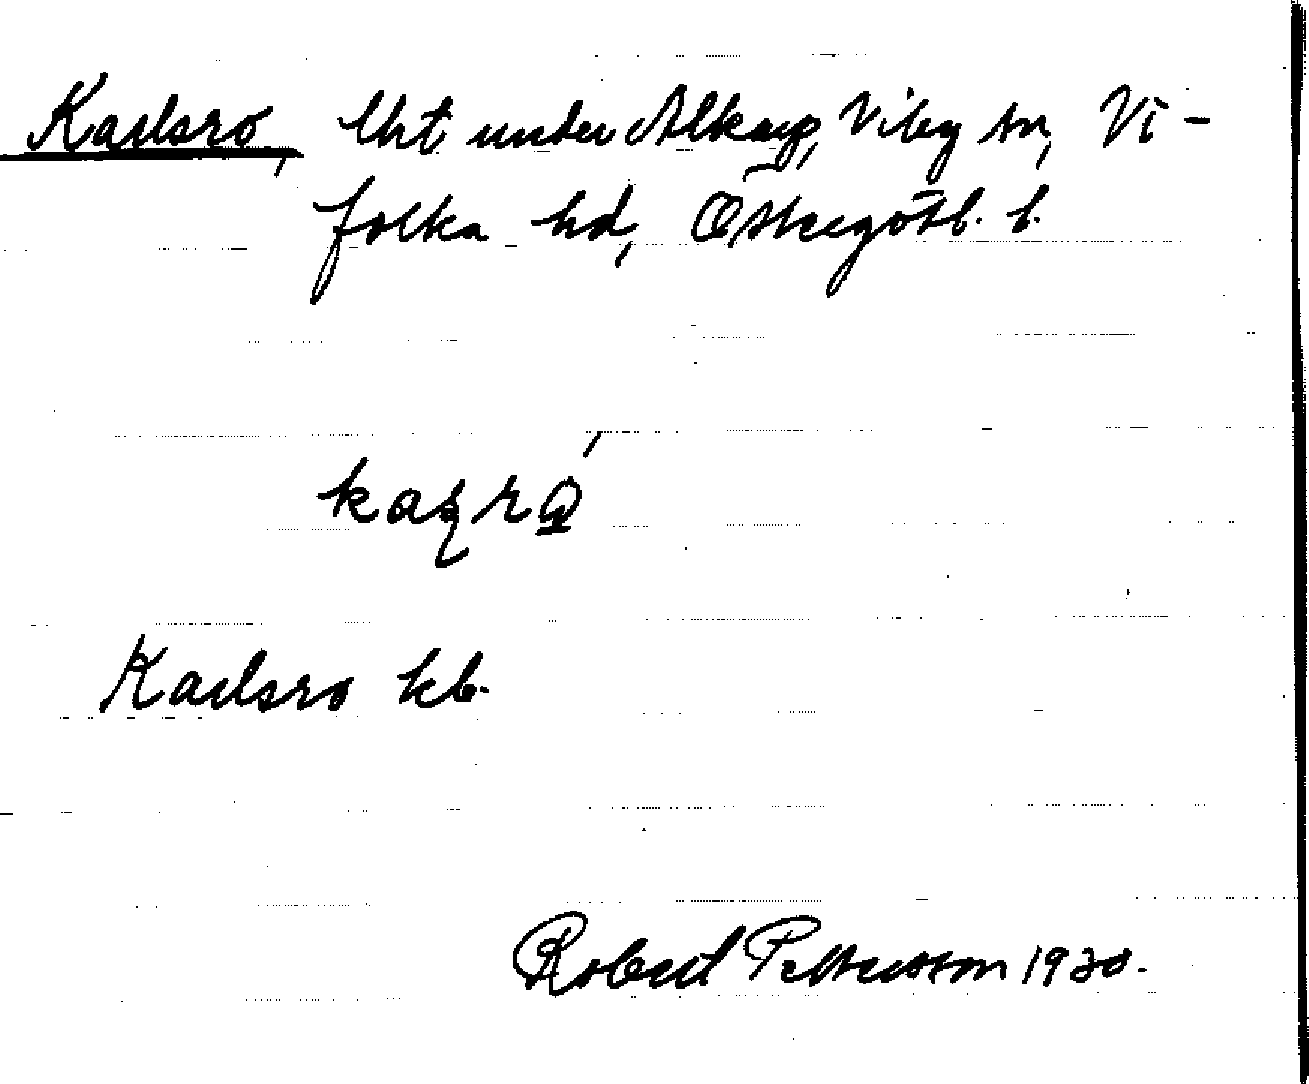 Karlsro, lht under Alkarp, Viby sn, Vi-
folka hd, Östergötl. l.
Karlsro kb.
Robert Pettersson 1930.